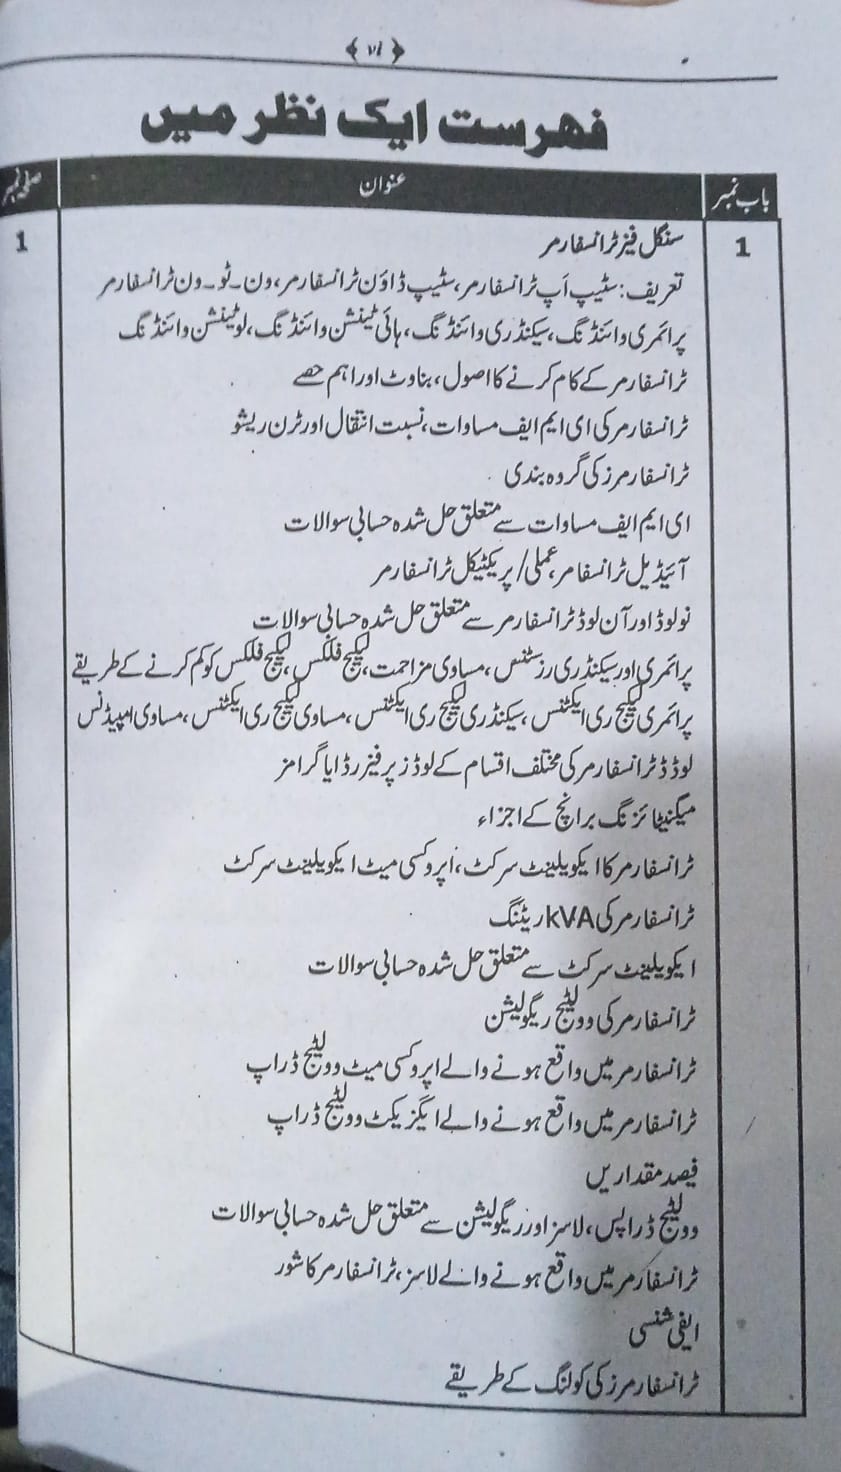 ﴿vi﴾
فہرست ایک نظر میں
باب نمبر عنوان صفحہ نمبر
1 سنگل فیز ٹرانسفارمر 1
تعریف: سٹیپ اَپ ٹرانسفارمر، سٹیپ ڈاؤن ٹرانسفارمر، ون۔ٹو۔ون ٹرانسفارمر
پرائمری وائنڈنگ، سیکنڈری وائنڈنگ، ہائی ٹینشن وائنڈنگ، لو ٹینشن وائنڈنگ
ٹرانسفارمر کے کام کرنے کا اصول، بناوٹ اور اہم حصے
ٹرانسفارمر کی ای ایم ایف مساوات، نسبت انتقال اور ٹرن ریشو
ٹرانسفارمرز کی گروہ بندی
ای ایم ایف مساوات سے متعلق حل شدہ حسابی سوالات
آئیڈیل ٹرانسفامر، عملی/پریکٹیکل ٹرانسفارمر
نو لوڈ اور آن لوڈ ٹرانسفارمر سے متعلق حل شدہ حسابی سوالات
پرائمری اور سیکنڈری رزسٹنس، مساوی مزاحمت، لیکیج فلکس، لیکیج فلکس کو کم کرنے کے طریقے
پرائمری لیکیج ری ایکٹنس، سیکنڈری لیکیج ری ایکٹنس، مساوی لیکیج ری ایکٹنس، مساوی امپیڈنس
لوڈڈ ٹرانسفارمر کی مختلف اقسام کے لوڈز پر فیزر ڈایا گرامز
میگنیٹائزنگ برانچ کے اجزاء
ٹرانسفارمر کا ایکویلینٹ سرکٹ، اپروکسی میٹ ایکویلینٹ سرکٹ
ٹرانسفارمر کی kVA ریٹنگ
ایکویلینٹ سرکٹ سے متعلق حل شدہ حسابی سوالات
ٹرانسفارمر کی وولٹیج ریگولیشن
ٹرانسفارمر میں واقع ہونے والے اپروکسی میٹ وولٹیج ڈراپ
ٹرانسفارمر میں واقع ہونے والے ایگزیکٹ وولٹیج ڈراپ
فیصد مقداریں
وولٹیج ڈراپس، لاسز اور ریگولیشن سے متعلق حل شدہ حسابی سوالات
ٹرانسفارمر میں واقع ہونے والے لاسز، ٹرانسفارمر کا شور
ایفی شنسی
ٹرانسفارمرز کی کولنگ کے طریقے